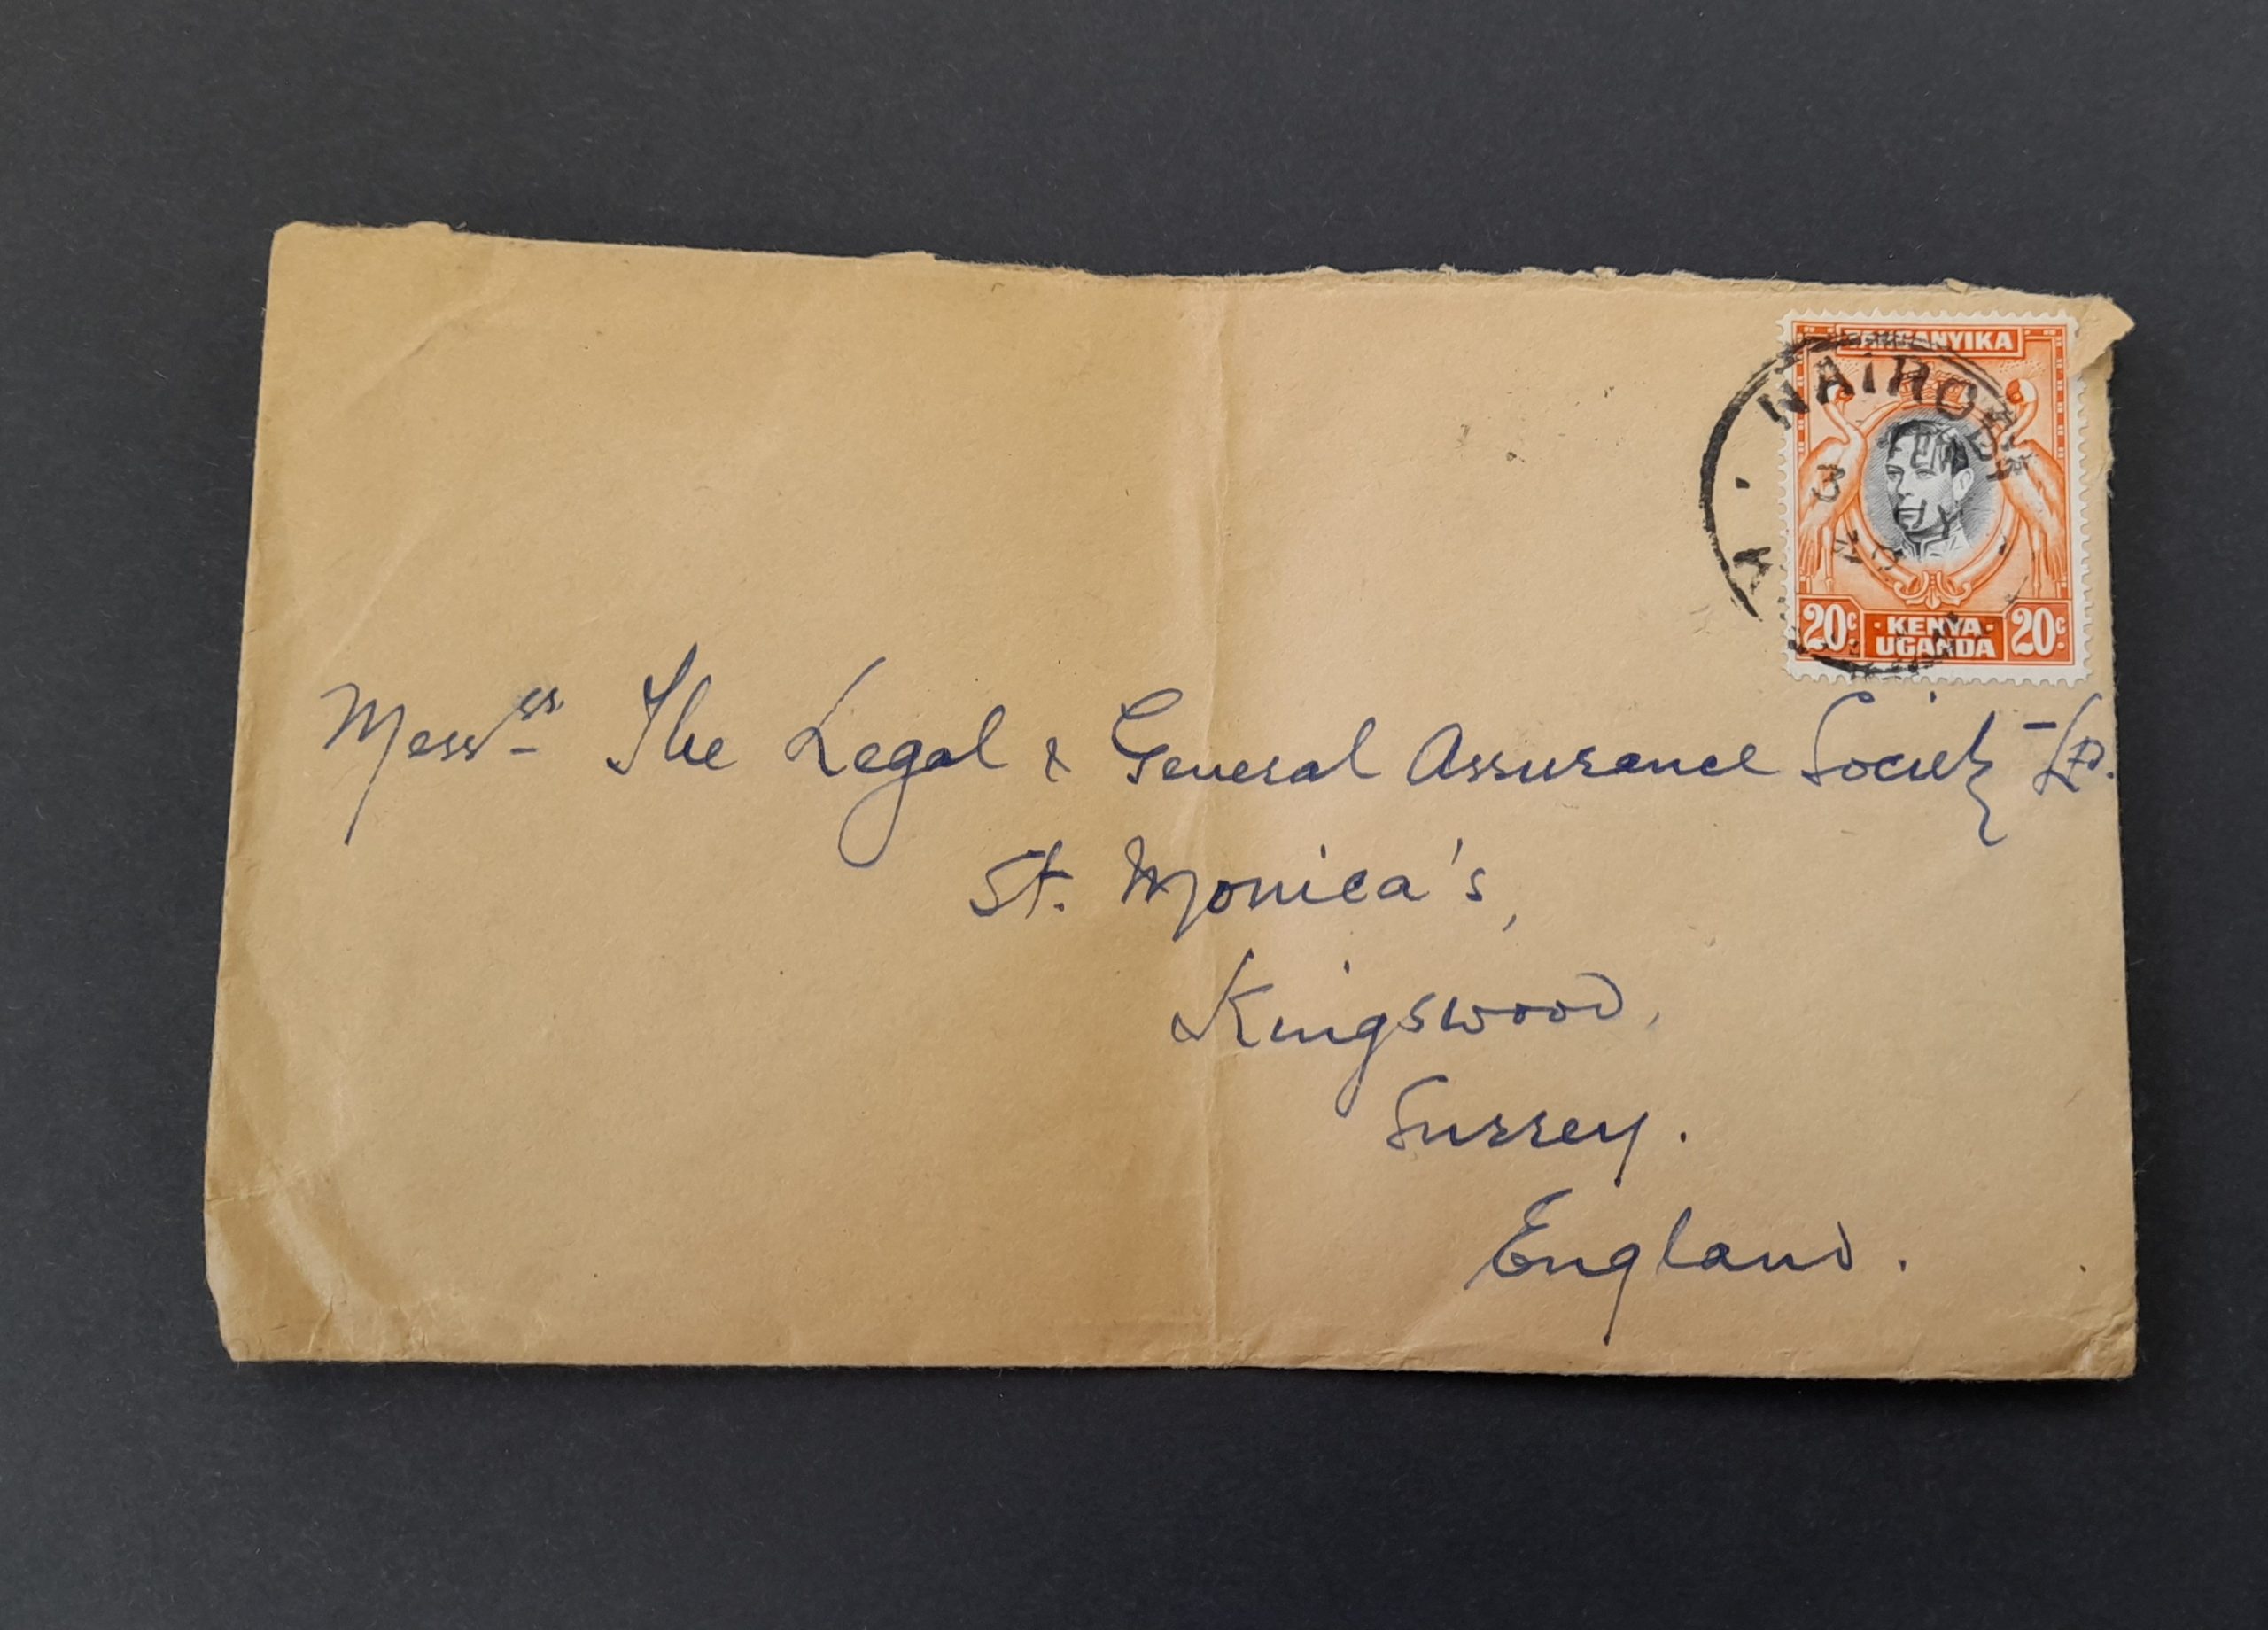 TANGANYIKA
NAIROBI
3
20c
· KENYA ·
UGANDA
20c
Messrs. The Legal & General Assurance Society Ld.
St. Monica's,
Kingswood,
Surrey.
England.